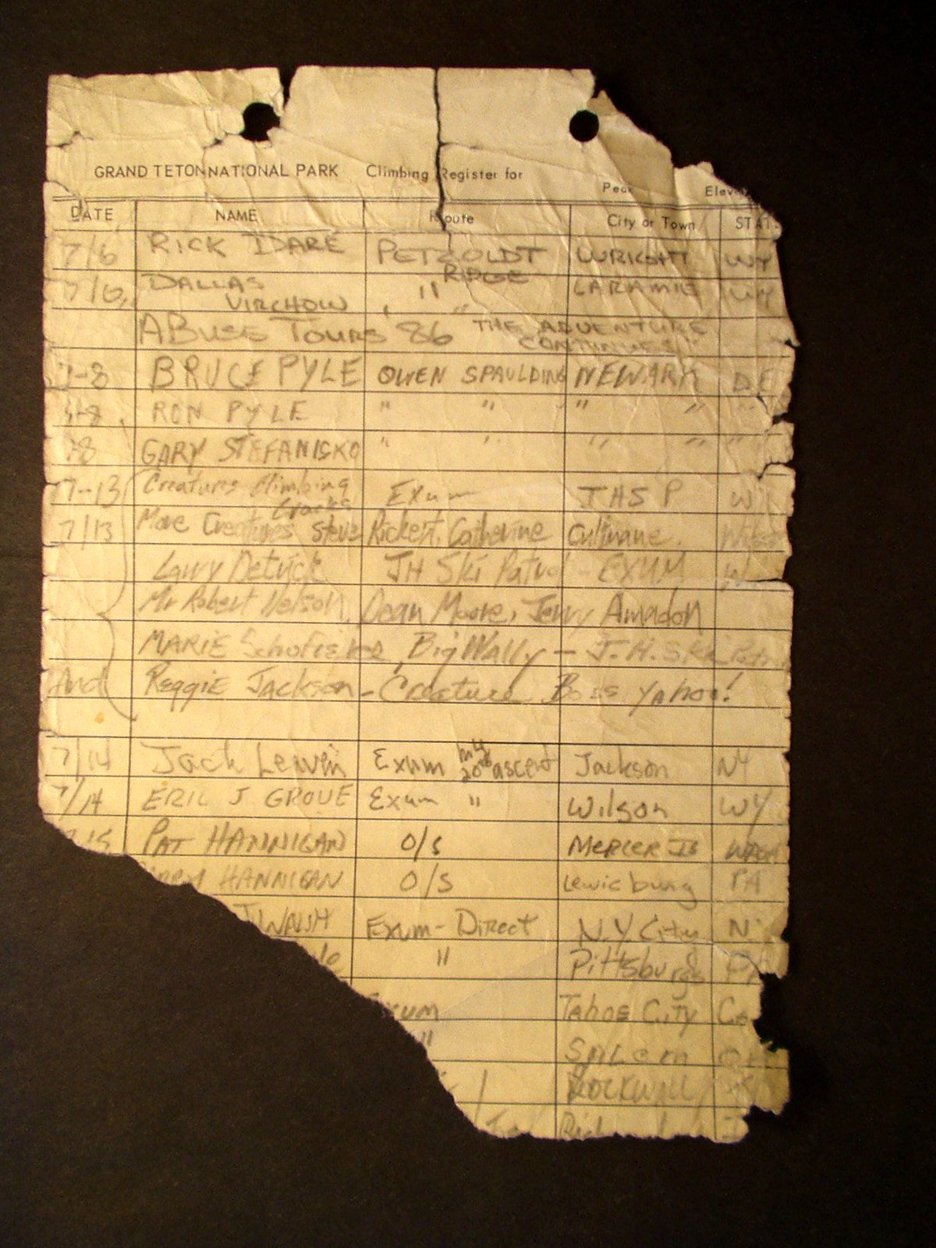 GRAND TETON NATIONAL PARK Climbing Register for
Peak Elev
DATE NAME Route City or Town STAT
7/6 RICK IDARE PETZOLDT RIDGE WRIGHT WY
7/6 DALLAS VIRCHOW " " LARAMIE WY
ABUSE TOURS 86 THE ADVENTURE CONTINUES!
7-8 BRUCE PYLE OWEN SPAULDING NEWARK DE
7-8 RON PYLE " " " " "
-8 GARY STEFANISKO " " " " "
7-13 Creatures Climbing Cracks Exum JHSP W
7/13 More Creatures Steve Rickert, Catherine Cullinane.
Larry Detrick JH Ski Patrol - EXUM W
Mr Robert Nelson, Dean Moore, Jerry Amadon
MARIE Schofield, Big Wally - J.H. Ski Patrol
And Reggie Jackson - Creature Boss Yahoo!
7/14 Jack Exum my 20th ascent Jackson
7/14 ERIC J GROVE Exum " Wilson WY
15 PAT HANNIGAN O/S MERCER IS WASH
HANNIGAN O/S Lewisburg PA
WALSH EXUM-DIRECT N.Y City N
" Pittsburgh PA
EXUM TAHOE CITY CA
" SALEM
ROCKWALL